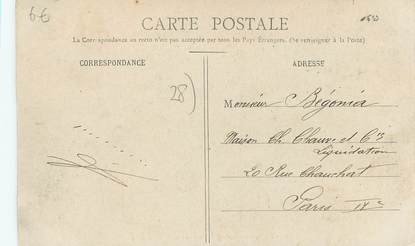 6€
CARTE POSTALE
La Correspondance au recto n'est pas acceptée par tous les Pays Étrangers. (Se renseigner à la Poste)
CORRESPONDANCE
ADRESSE
28)
Monsieur Bégonia
Maison Ch. Chauvet & Cie
Liquidation
20 Rue Chauchat
Paris IXe